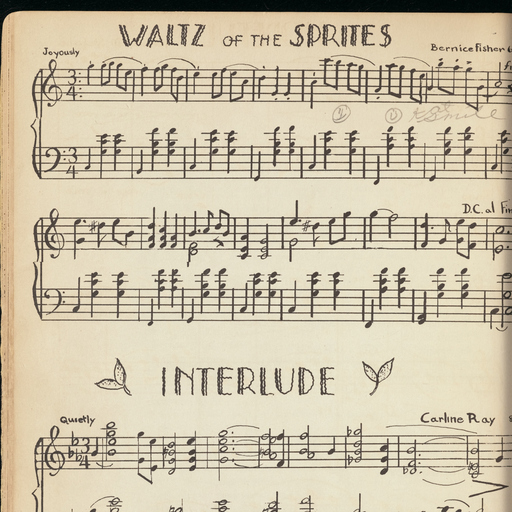 WALTZ OF THE SPRITES
Joyously
Bernice Fisher
3
4
3
4
D.C. al Fin
INTERLUDE
Quietly
Carline Ray
3
4